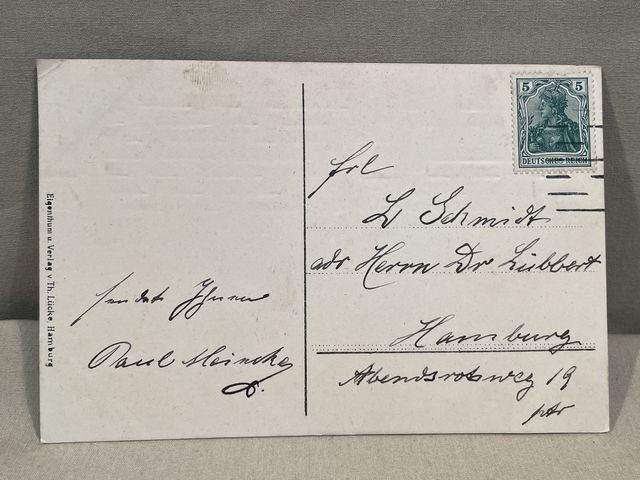 Eigenthum u. Verlag v Th. Lücke, Hamburg
sendet Ihnen
Paul Meincke
5 5
DEUTSCHES REICH
Frl
L Schmidt
adr Herrn Dr Lübbert
Hamburg
Abendrotsweg 19
ptr